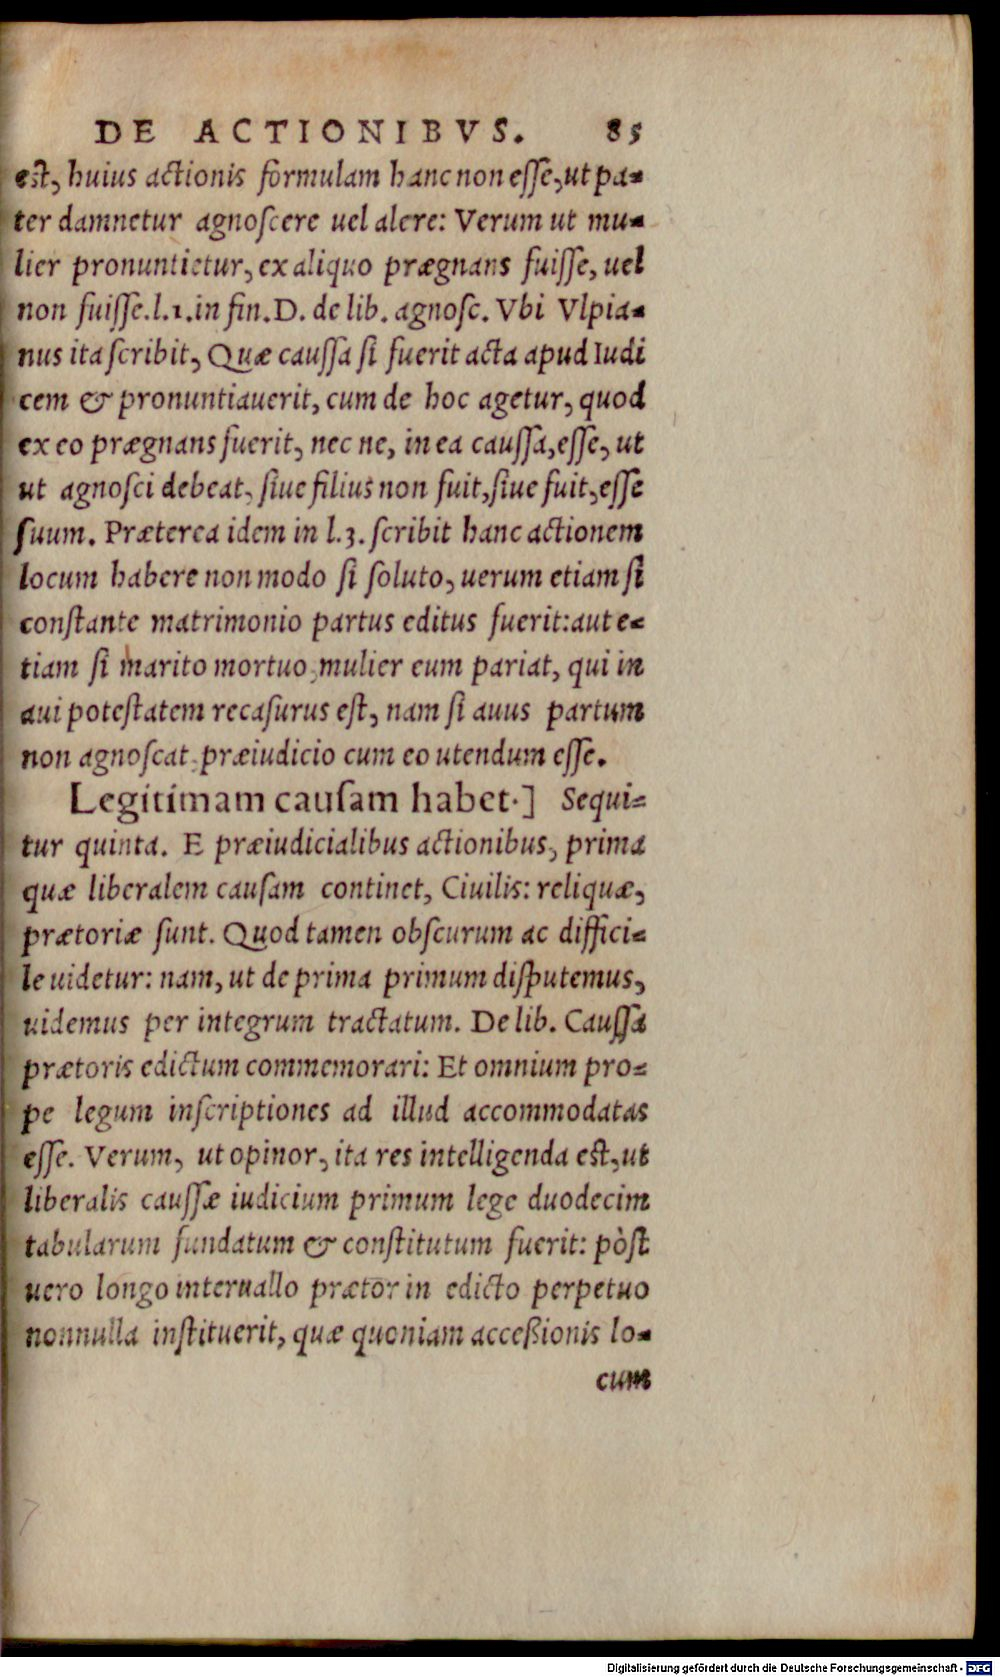 DE ACTIONIBVS. 85
est, huius actionis formulam hanc non esse, ut pa-
ter damnetur agnoscere uel alere: Verum ut mu-
lier pronuntietur, ex aliquo prægnans fuisse, uel
non fuisse. l. 1. in fin. D. de lib. agnosc. Vbi Vlpia-
nus ita scribit, Quæ caussa si fuerit acta apud Iudi
cem & pronuntiauerit, cum de hoc agetur, quod
ex eo prægnans fuerit, nec ne, in ea caussa, esse, ut
ut agnosci debeat, siue filius non fuit, siue fuit, esse
suum. Præterea idem in l. 3. scribit hanc actionem
locum habere non modo si soluto, uerum etiam si
constante matrimonio partus editus fuerit: aut e-
tiam si marito mortuo, mulier eum pariat, qui in
aui potestatem recasurus est, nam si auus partum
non agnoscat, præiudicio cum eo utendum esse.
Legitimam causam habet.] Sequi-
tur quinta. E præiudicialibus actionibus, prima
quæ liberalem causam continet, Ciuilis: reliquæ,
prætoriæ sunt. Quod tamen obscurum ac diffici-
le uidetur: nam, ut de prima primum disputemus,
uidemus per integrum tractatum. De lib. Caussa
prætoris edictum commemorari: Et omnium pro-
pe legum inscriptiones ad illud accommodatas
esse. Verum, ut opinor, ita res intelligenda est, ut
liberalis caussæ iudicium primum lege duodecim
tabularum fundatum & constitutum fuerit: pòst
uero longo interuallo prætor in edicto perpetuo
nonnulla instituerit, quæ quoniam acceßionis lo-
cum
Digitalisierung gefördert durch die Deutsche Forschungsgemeinschaft - DFG